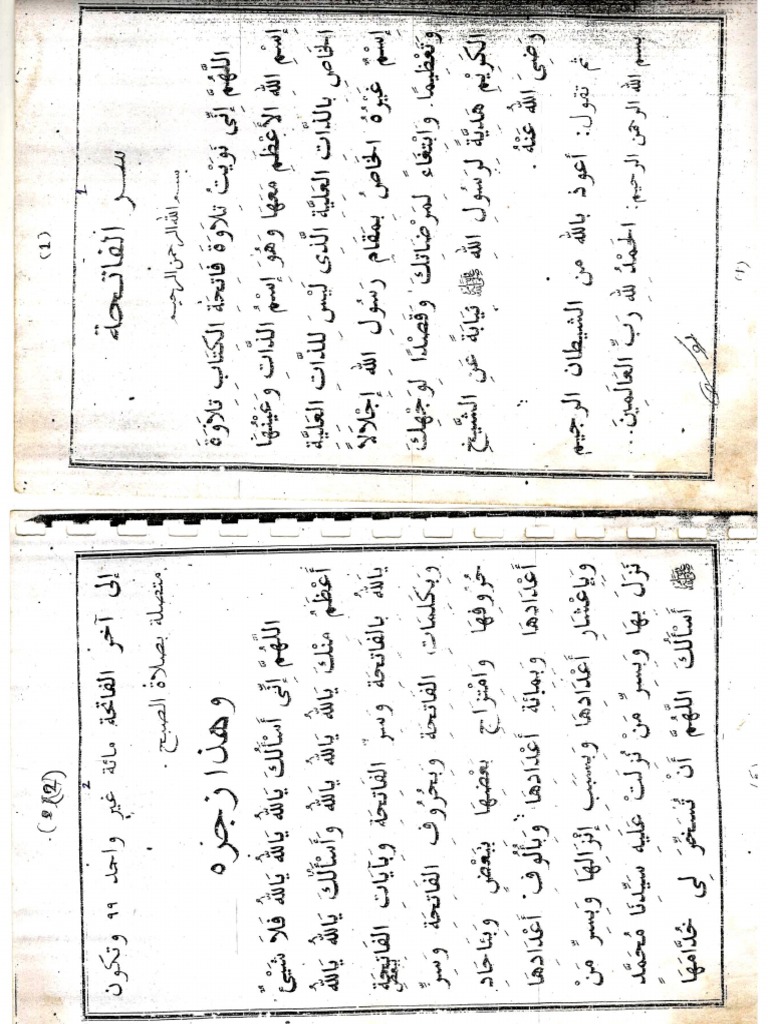 (1)
سر الفاتحة
1
بسم الله الرحمن الرحيم
اللَّهُمَّ إِنِّي نَوَيْتُ تِلَاوَةَ فَاتِحَةَ الكِتَابِ تِلَاوَةَ
اِسْمِ اللهِ الأَعْظَمِ مَعَهَا وَهُوَ إِسْمُ الذَّاتِ وَعَيْنُهَا
الخَاصِ بِالذَّاتِ العَلِيَّةِ الَّذِي لَيْسَ لِلذَّاتِ العَلِيَّةِ
إِسْمٌ غَيْرُهُ الخَاصُ بِمَقَامِ رَسُولِ اللهِ إِجْلَالاً
وَتَعْظِيمًا وَابْتِغَاءً لِمَرْضَاتِكَ وَقَصْدًا لِوَجْهِكَ
الكَرِيمِ هَدِيَّةً لِرَسُولِ اللهِ ﷺ نِيَابَةً عَنِ الشَّيْخِ
رَضِيَ اللهُ عَنْهُ .
ثم تقول: أعوذ بالله من الشيطان الرجيم
بسم الله الرحمن الرحيم: الحَمْدُ للهِ رَبِّ العَالَمِينَ...
(1)
(2)
إلى آخر الفاتحة مائة غير واحد ٩٩ وتكون
2
متصلة بصلاة الصبح .
وهذا زجره
اللَّهُمَّ إِنِّي أَسْأَلُكَ يَاللهُ يَاللهُ يَاللهُ فَلَا شَيْئٌ
أَعْظَمُ مِنْكَ يَاللهُ يَاللهُ يَاللهُ وَأَسْأَلُكَ يَاللهُ يَاللهُ
يَاللهُ بِالفَاتِحَةِ وَسِرِّ الفَاتِحَةِ وَبِآيَاتِ الفَاتِحَةِ
وَبِكَلِمَاتِ الفَاتِحَةِ وَبِحُرُوفِ الفَاتِحَةِ وَسِرِّ بعض
حُرُوفِهَا وَامْتِزَاجِ بَعْضِهَا بِبَعْضٍ وَبِئَاحَادِ
أَعْدَادِهَا وَبِمِائَةِ أَعْدَادِهَا وَبِأُلُوفِ أَعْدَادِهَا
وَبِأَعْشَارِ أَعْدَادِهَا وَبِسَبَبِ إِنْزَالِهَا وَبِسِرِّ مَنْ
نَزَلَ بِهَا وَبِسِرِّ مَنْ نُزِلَتْ عَلَيْهِ سَيِّدِنَا مُحَمَّدٍ
ﷺ أَسْأَلُكَ اللَّهُمَّ أَنْ تُسَخِّرَ لِي خُدَّامَهَا